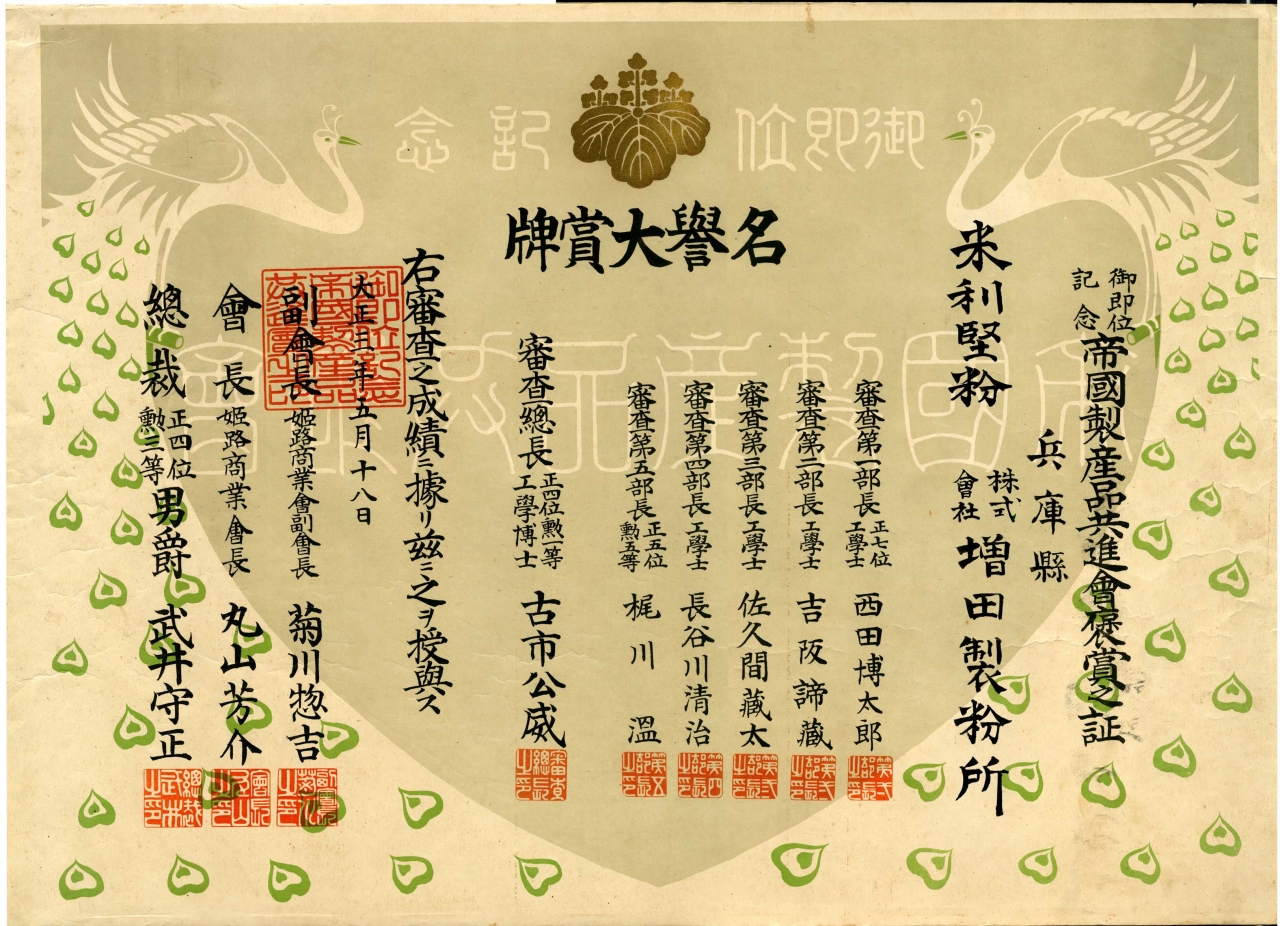 御即位記念
名譽大賞牌
帝國製産品共進會
御即位記念帝國製産品共進會褒賞之証
兵庫縣
米利堅粉 株式會社 増田製粉所
審査第一部長 正七位工學士 西田博太郎
審査第二部長 工學士 吉阪諦藏
審査第三部長 工學士 佐久間藏太
審査第四部長 工學士 長谷川清治
審査第五部長 正五位勲五等 梶川溫
審査總長 正四位勲一等工學博士 古市公威
右審査之成績ニ據リ玆ニ之ヲ授與ス
大正三年五月十八日
御即位記念帝國製産品共進會之印
副會長 姫路商業會副會長 菊川惣吉
會長 姫路商業會長 丸山芳介
總裁 正四位勲三等 男爵 武井守正
第四部長之印
第五部長之印
審査總長之印